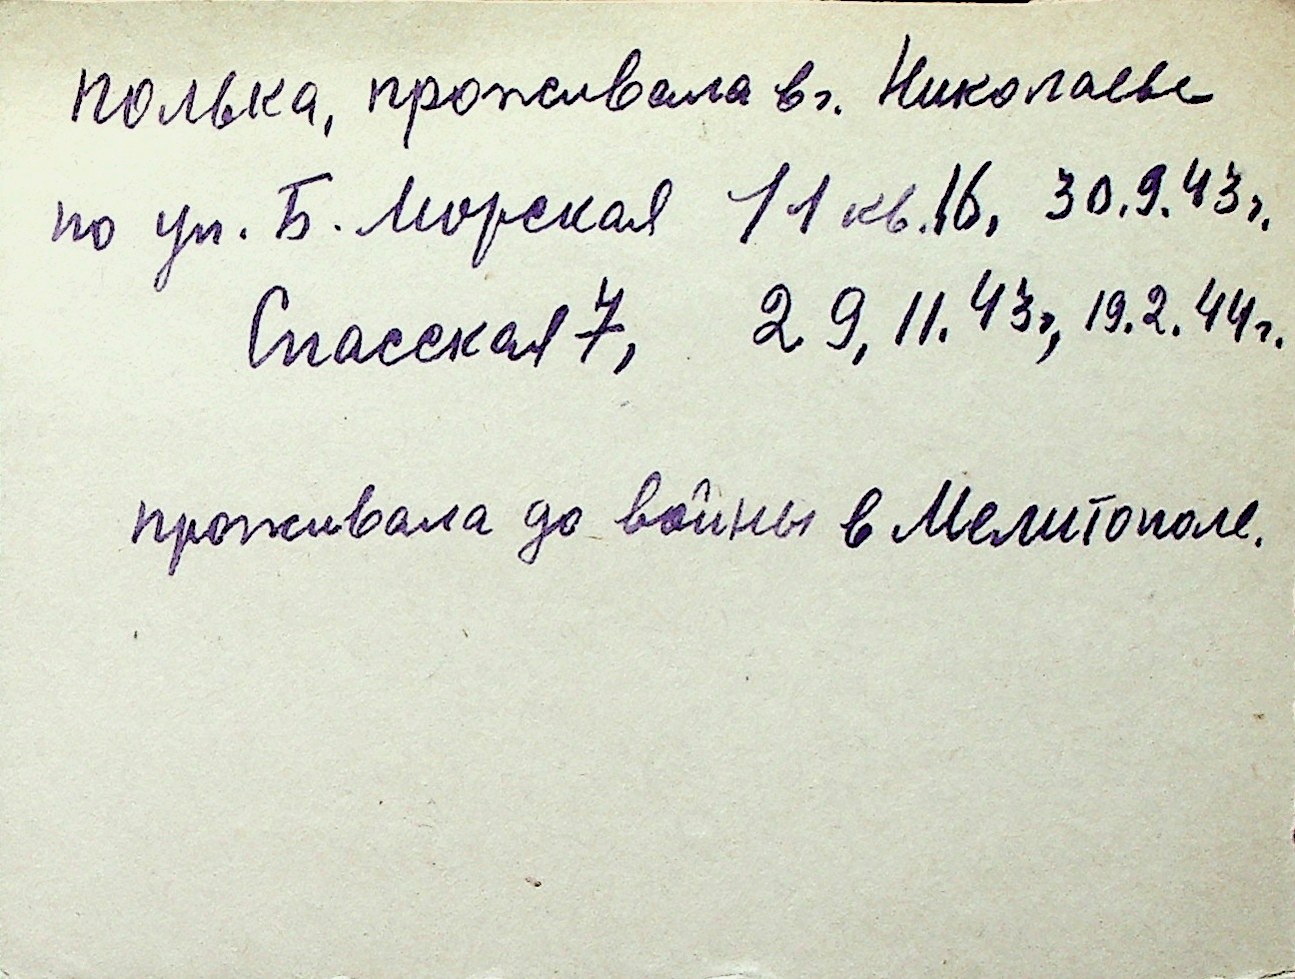 полька, проживала в г. Николаеве
по ул. Б. Морская 11 кв. 16, 30.9.43г.
Спасская 7, 29, 11.43г, 19.2.44г.
проживала до войны в Мелитополе.